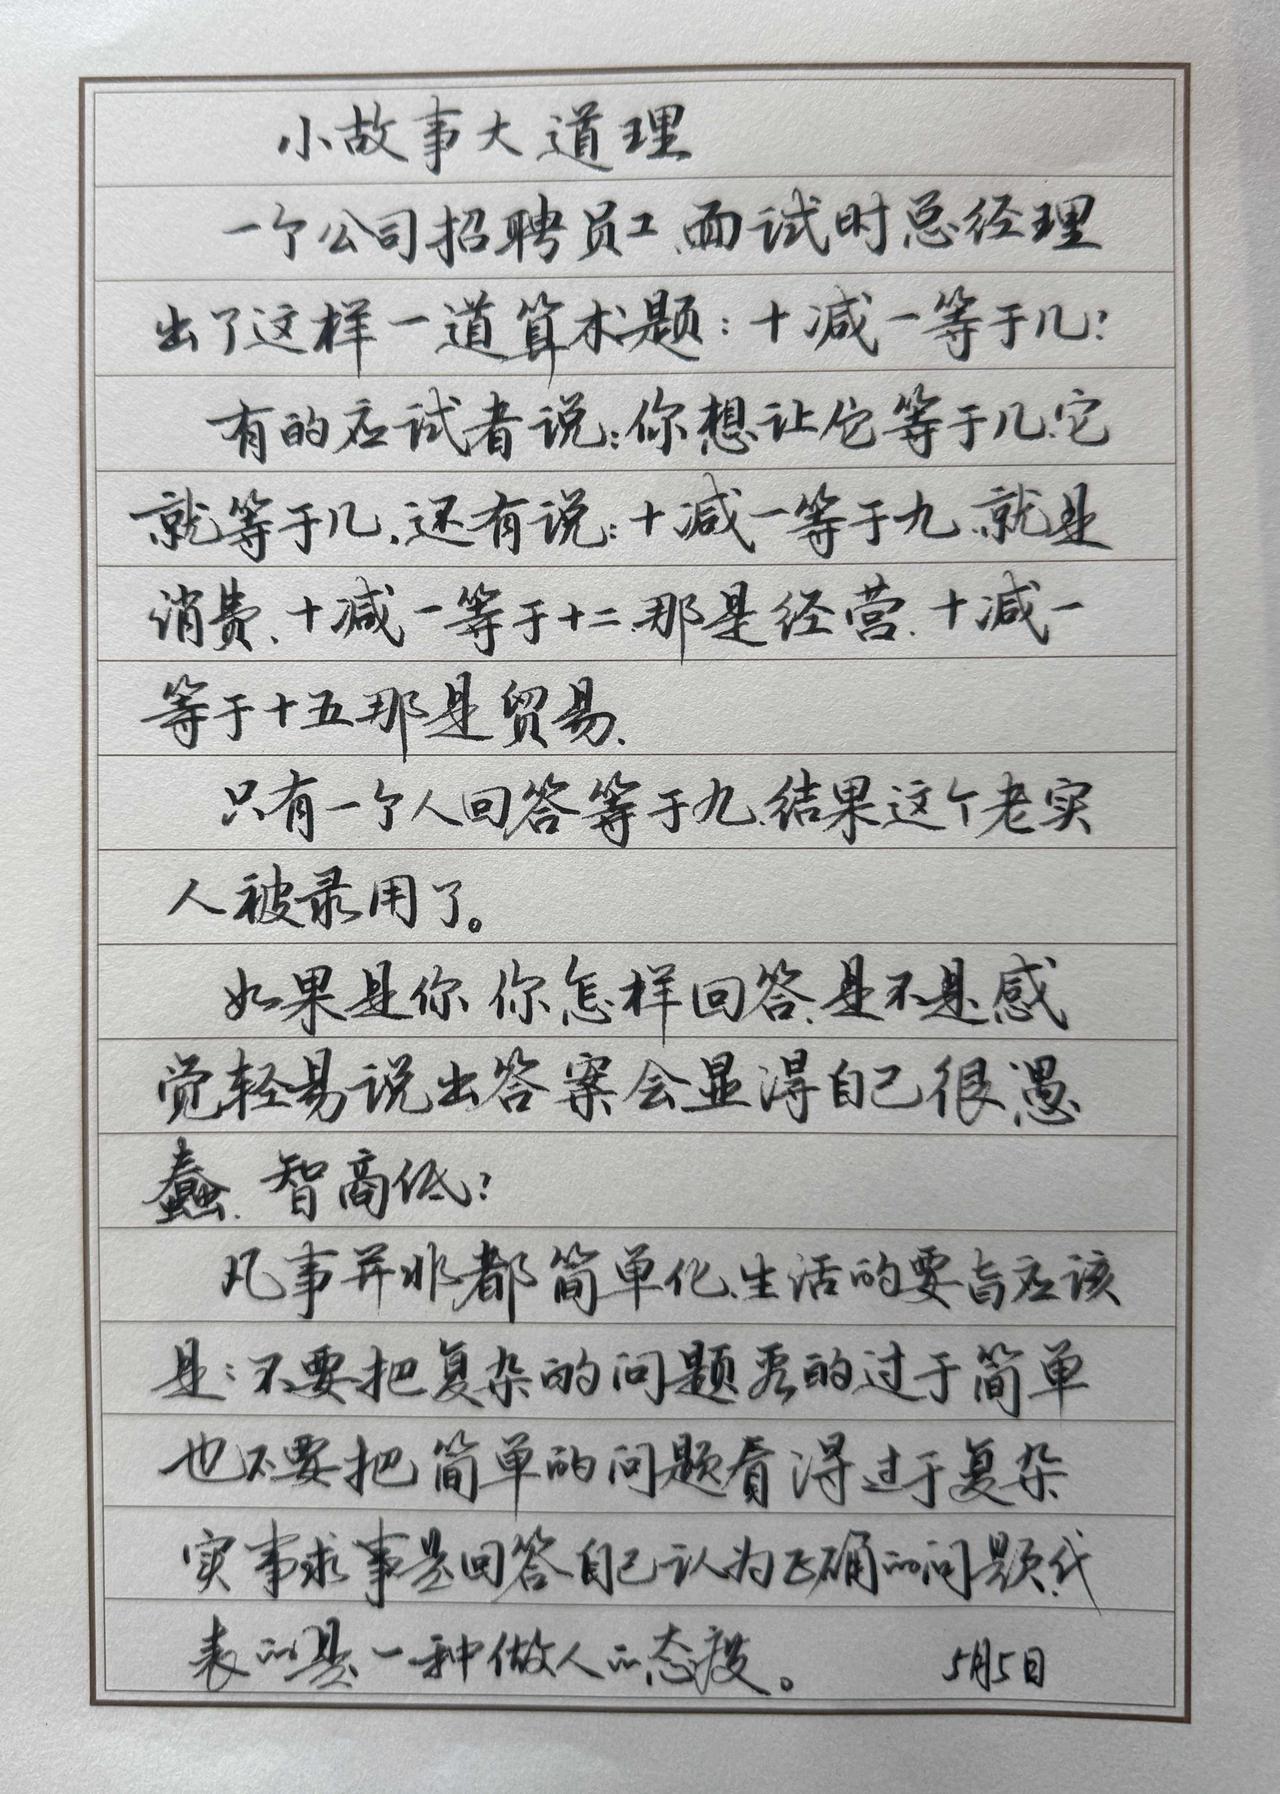 小故事大道理
一个公司招聘员工、面试时总经理
出了这样一道算术题：十减一等于几？
有的应试者说：你想让它等于几、它
就等于几、还有说：十减一等于九、就是
消费、十减一等于十二、那是经营、十减一
等于十五那是贸易、
只有一个人回答等于九、结果这个老实
人被录用了。
如果是你你怎样回答、是不是感
觉轻易说出答案会显得自己很愚
蠢、智商低？
凡事并非都简单化、生活的要旨应该
是：不要把复杂的问题看的过于简单
也不要把简单的问题看得过于复杂
实事求事是回答自己认为正确的问题、代
表的是一种做人的态度。 5月5日